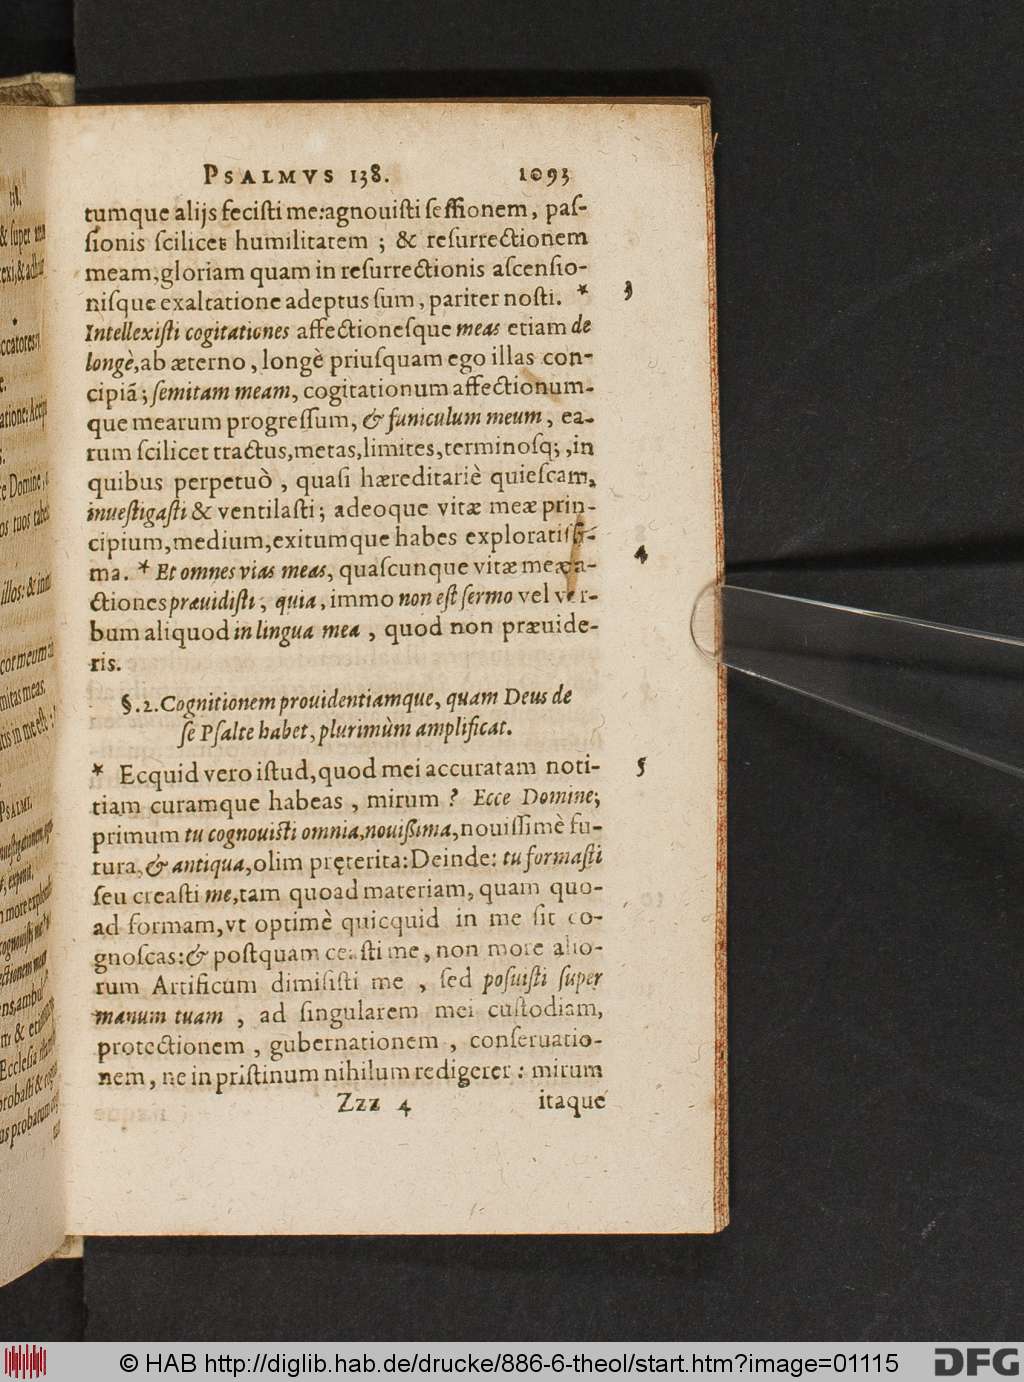 PSALMVS 138. 1093
tumque alijs fecisti me: agnouisti sessionem, pas-
sionis scilicet humilitatem ; & resurrectionem
meam, gloriam quam in resurrectionis ascensio-
nisque exaltatione adeptus sum, pariter nosti. * 3
Intellexisti cogitationes affectionesque meas etiam de
longè, ab æterno, longè priusquam ego illas con-
cipiā; semitam meam, cogitationum affectionum-
que mearum progressum, & funiculum meum, ea-
rum scilicet tractus, metas, limites, terminosq;, in
quibus perpetuò, quasi hæreditariè quiescam,
inuestigasti & ventilasti; adeoque vitæ meæ prin-
cipium, medium, exitumque habes exploratissi-
ma. * Et omnes vias meas, quascunque vitæ meæ a- 4
ctiones præuidisti, quia, immo non est sermo vel ver-
bum aliquod in lingua mea, quod non præuide-
ris.
§.2. Cognitionem prouidentiamque, quam Deus de
se Psalte habet, plurimùm amplificat.
* Ecquid vero istud, quod mei accuratam noti- 5
tiam curamque habeas, mirum? Ecce Domine;
primum tu cognouisti omnia, nouissima, nouissimè fu-
tura, & antiqua, olim pręterita: Deinde: tu formasti
seu creasti me, tam quoad materiam, quam quo-
ad formam, vt optimè quicquid in me sit co-
gnoscas: & postquam creasti me, non more alio-
rum Artificum dimisisti me, sed posuisti super
manum tuam, ad singularem mei custodiam,
protectionem, gubernationem, conseruatio-
nem, ne in pristinum nihilum redigerer: mirum
Zzz 4 itaque
© HAB http://diglib.hab.de/drucke/886-6-theol/start.htm?image=01115 DFG